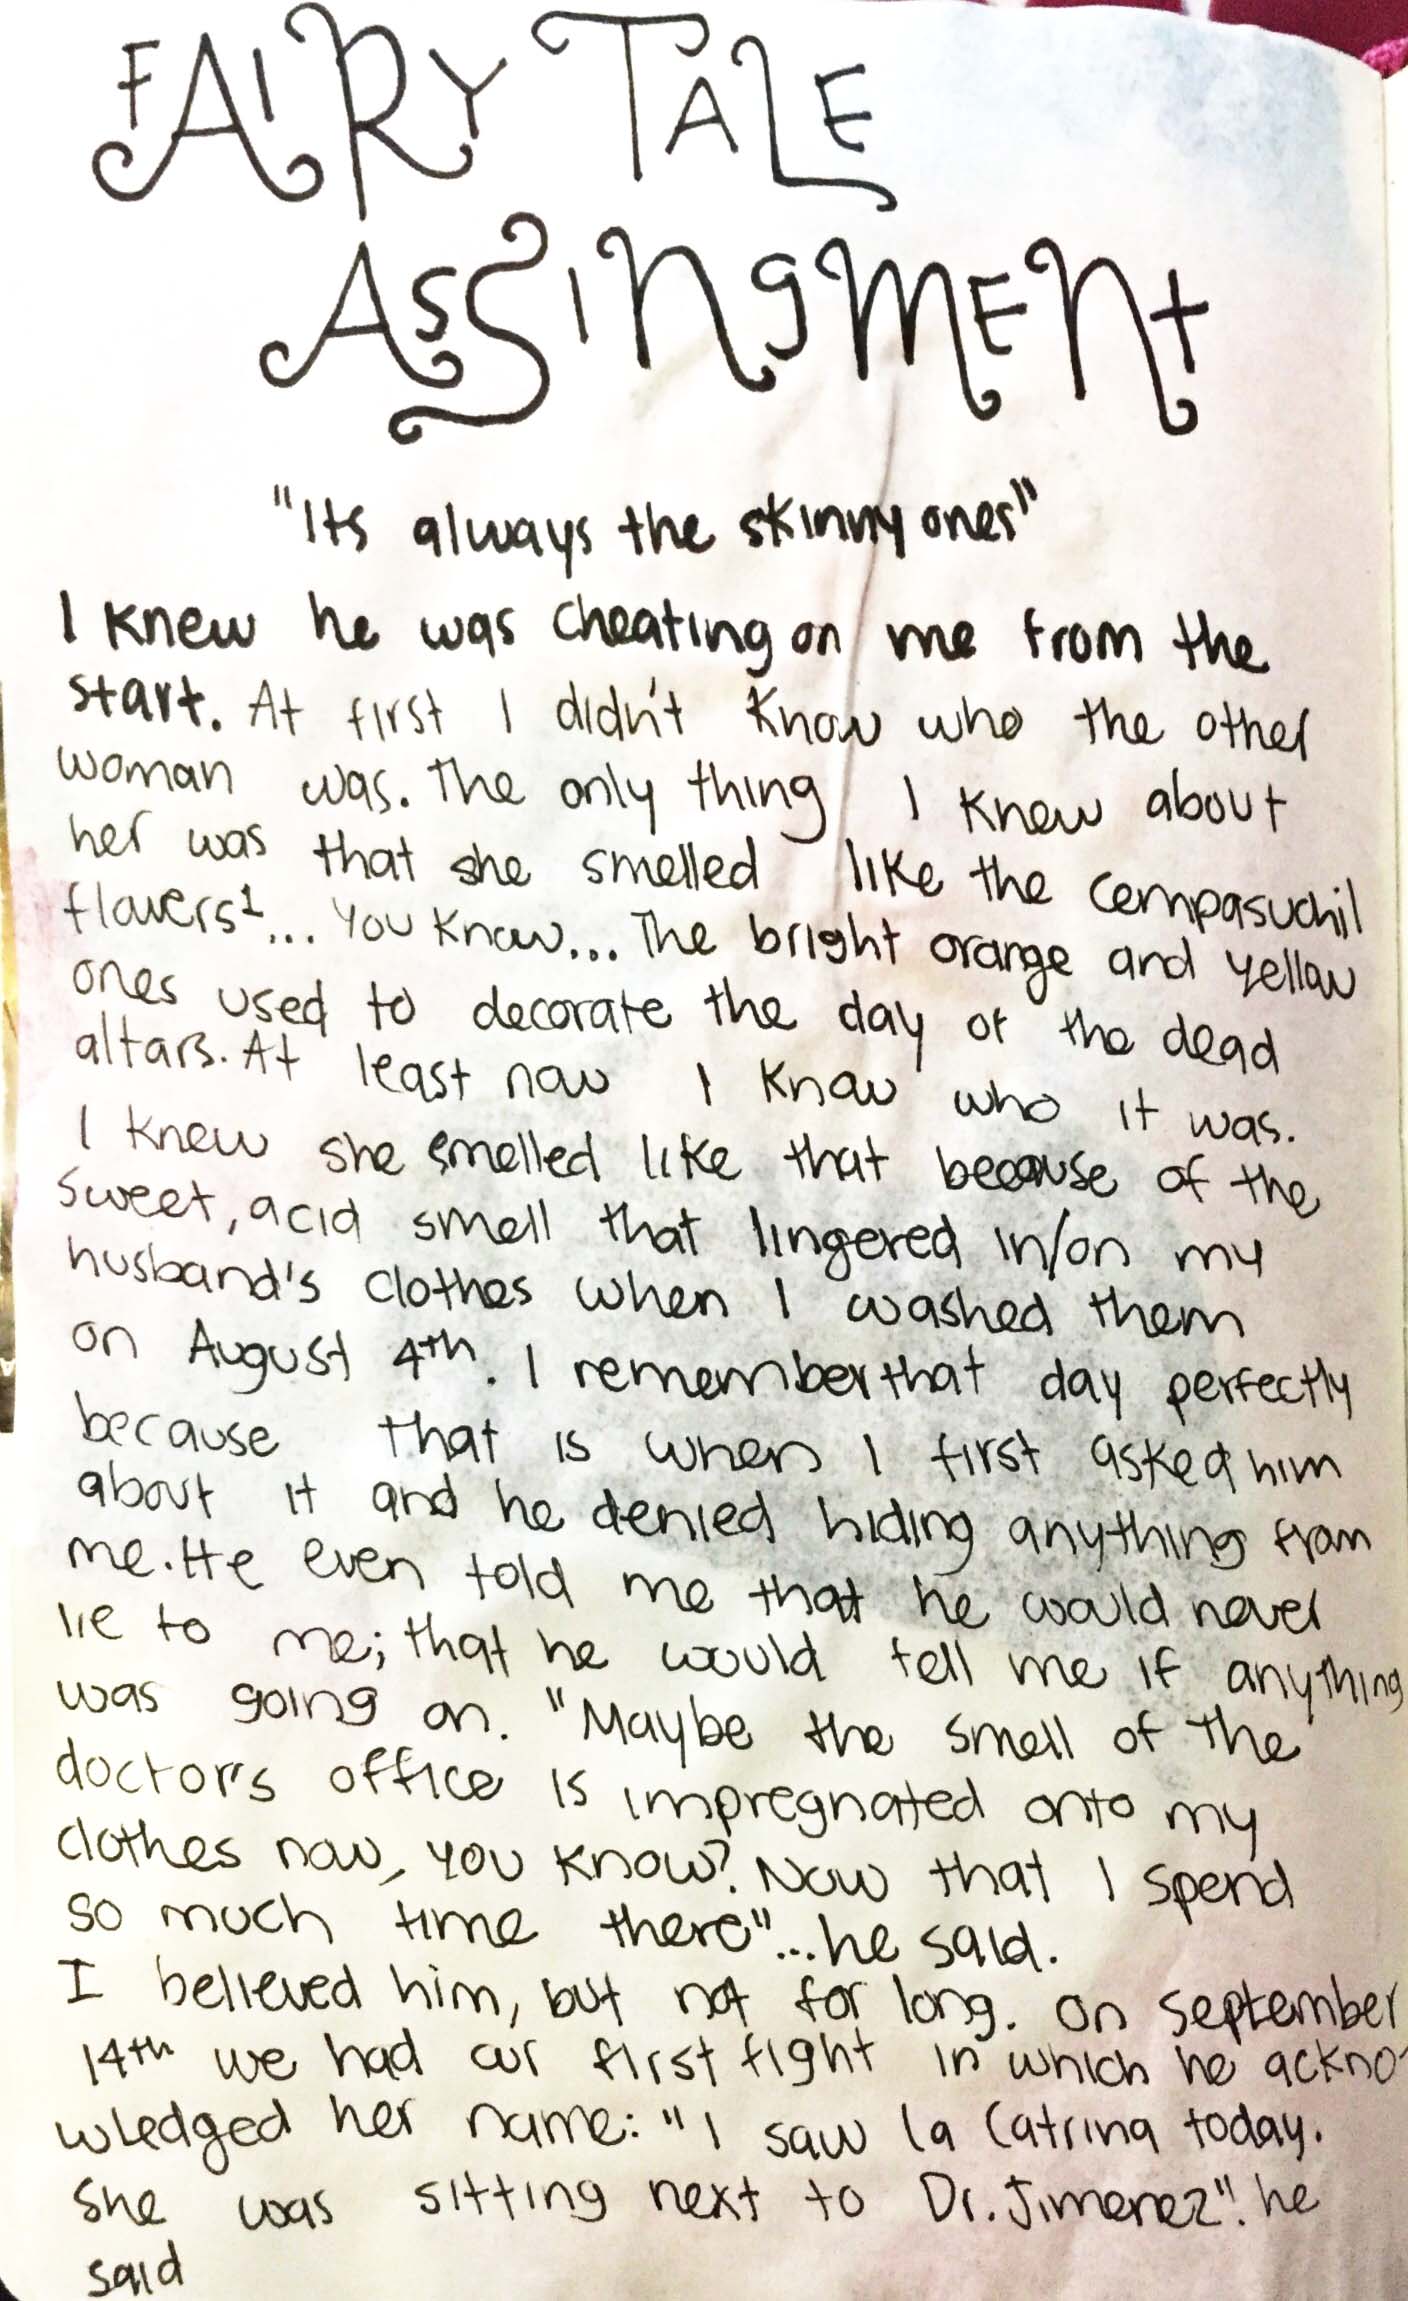 FAIRY TALE
ASSINGMENT
"Its always the skinny ones"
I knew he was cheating on me from the
start. At first I didn't know who the other
woman was. The only thing I knew about
her was that she smelled like the cempasuchil
flowers1... You know... The bright orange and yellow
ones used to decorate the day of the dead
altars. At least now I know who it was.
I knew she smelled like that because of the
sweet, acid smell that lingered in/on my
husband's clothes when I washed them
on August 4th. I remember that day perfectly
because that is when I first asked him
about it and he denied hiding anything from
me. He even told me that he would never
lie to me; that he would tell me if anything
was going on. "Maybe the smell of the
doctor's office is impregnated onto my
clothes now, you know? Now that I spend
so much time there"... he said.
I believed him, but not for long. On september
14th we had our first fight in which he ackno-
wledged her name: "I saw la Catrina today.
She was sitting next to Dr. Jimenez". he
said